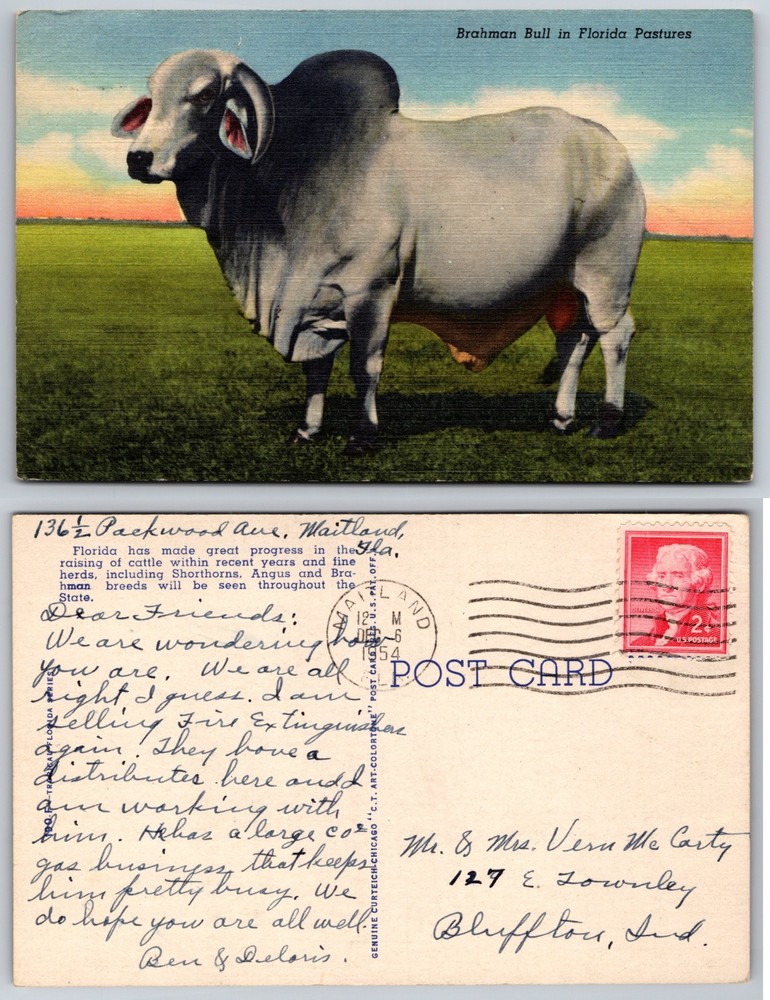 Brahman Bull in Florida Pastures
136 1/2 Packwood Ave. Maitland,
Fla.
Florida has made great progress in the
raising of cattle within recent years and fine
herds, including Shorthorns, Angus and Bra-
hman breeds will be seen throughout the
State.
Dear Friends:
We are wondering how
you are. We are all
right, I guess. I am
selling Fire Extinguishers
again. They have a
distributer here and I
am working with
him. He has a large CO2
gas business that keeps
him pretty busy. We
do hope you are all well.
Ben & Deloris.
TROPICAL FLORIDA SERIES
GENUINE CURTEICH-CHICAGO "C.T. ART-COLORTONE" POST CARD REG. U.S. PAT. OFF.
MAITLAND
12 M
DEC 6
1954
FLA.
2¢
U.S. POSTAGE
POST CARD
Mr. & Mrs. Vern McCarty
127 E. Townley
Bluffton, Ind.